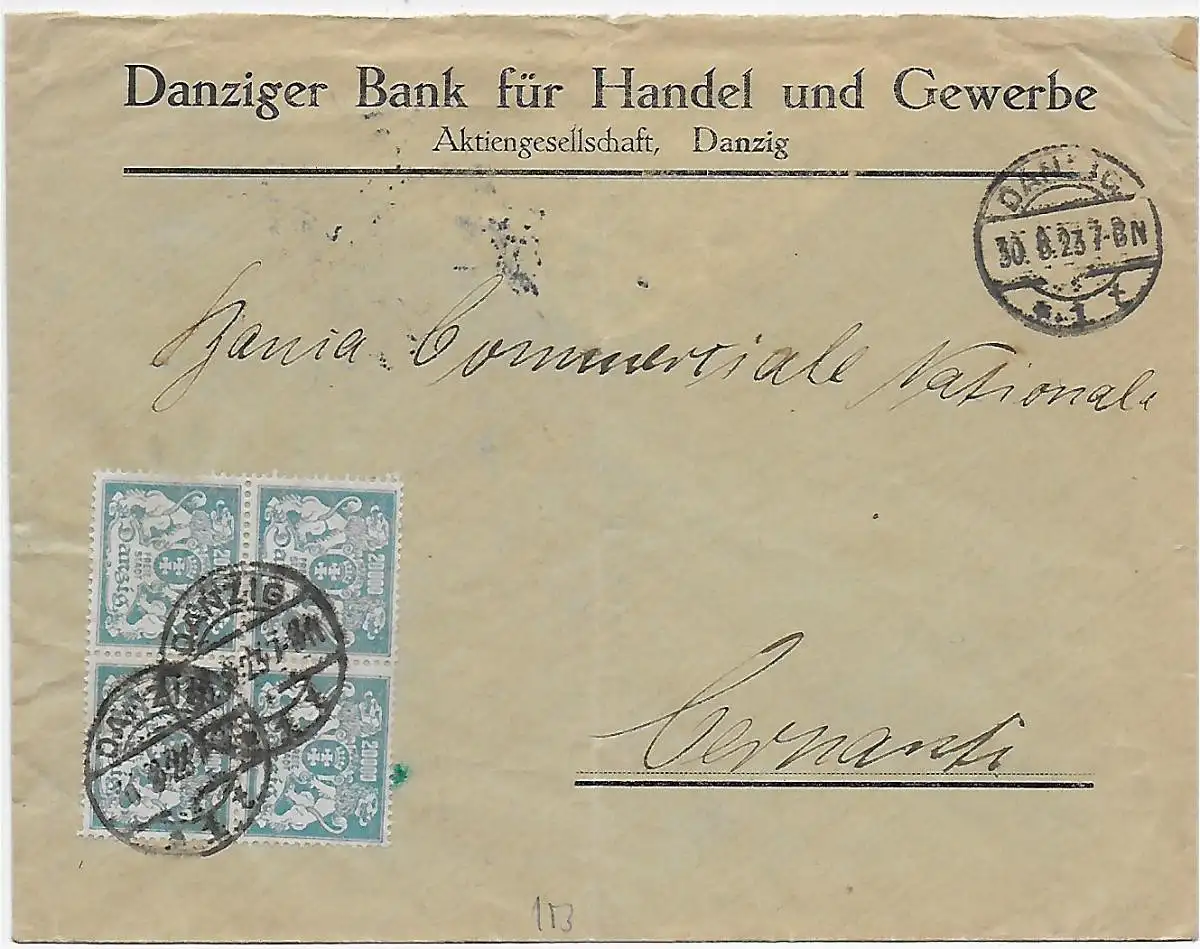 Danziger Bank für Handel und Gewerbe
Aktiengesellschaft, Danzig
DANZIG
30. 8. 23 7-8N
* 1 t
Commerciale Nationale
20000
Danzig
20000
DANZIG
8.23 7-8N
DANZIG
20000
Cernauti
113